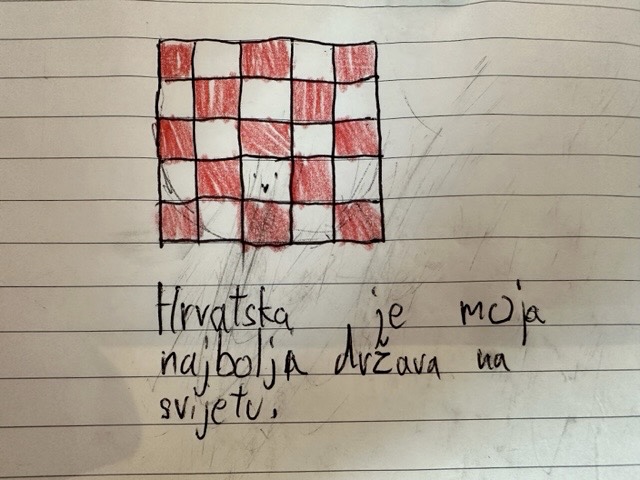 Hrvatska je moja
najbolja država na
svijetu.